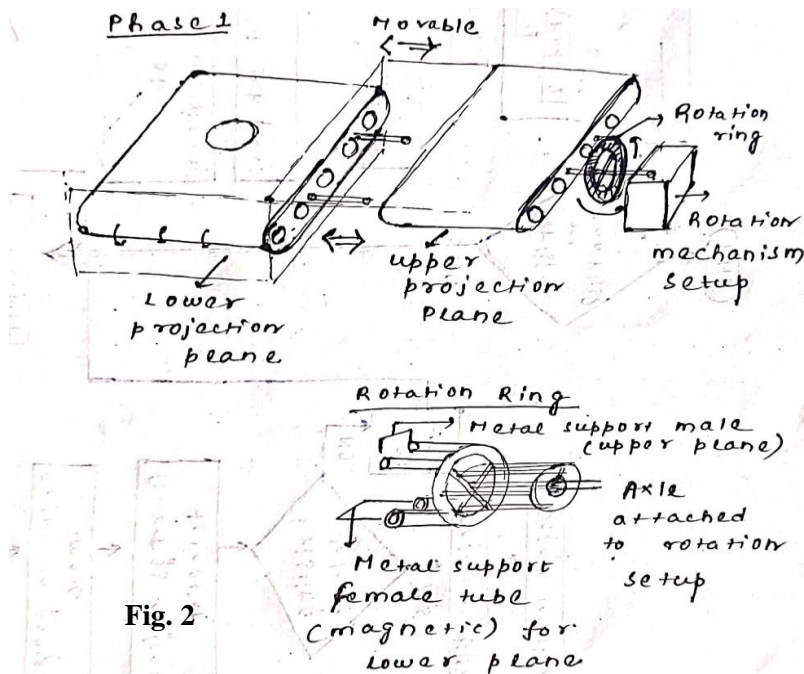 Phase 1
Movable
Rotation
ring
Rotation
mechanism
setup
upper
projection
Plane
Lower
projection
plane
Rotation Ring
Metal support male
(upper plane)
Axle
attached
to rotation
setup
Metal support
female tube
(magnetic) for
lower plane
Fig. 2